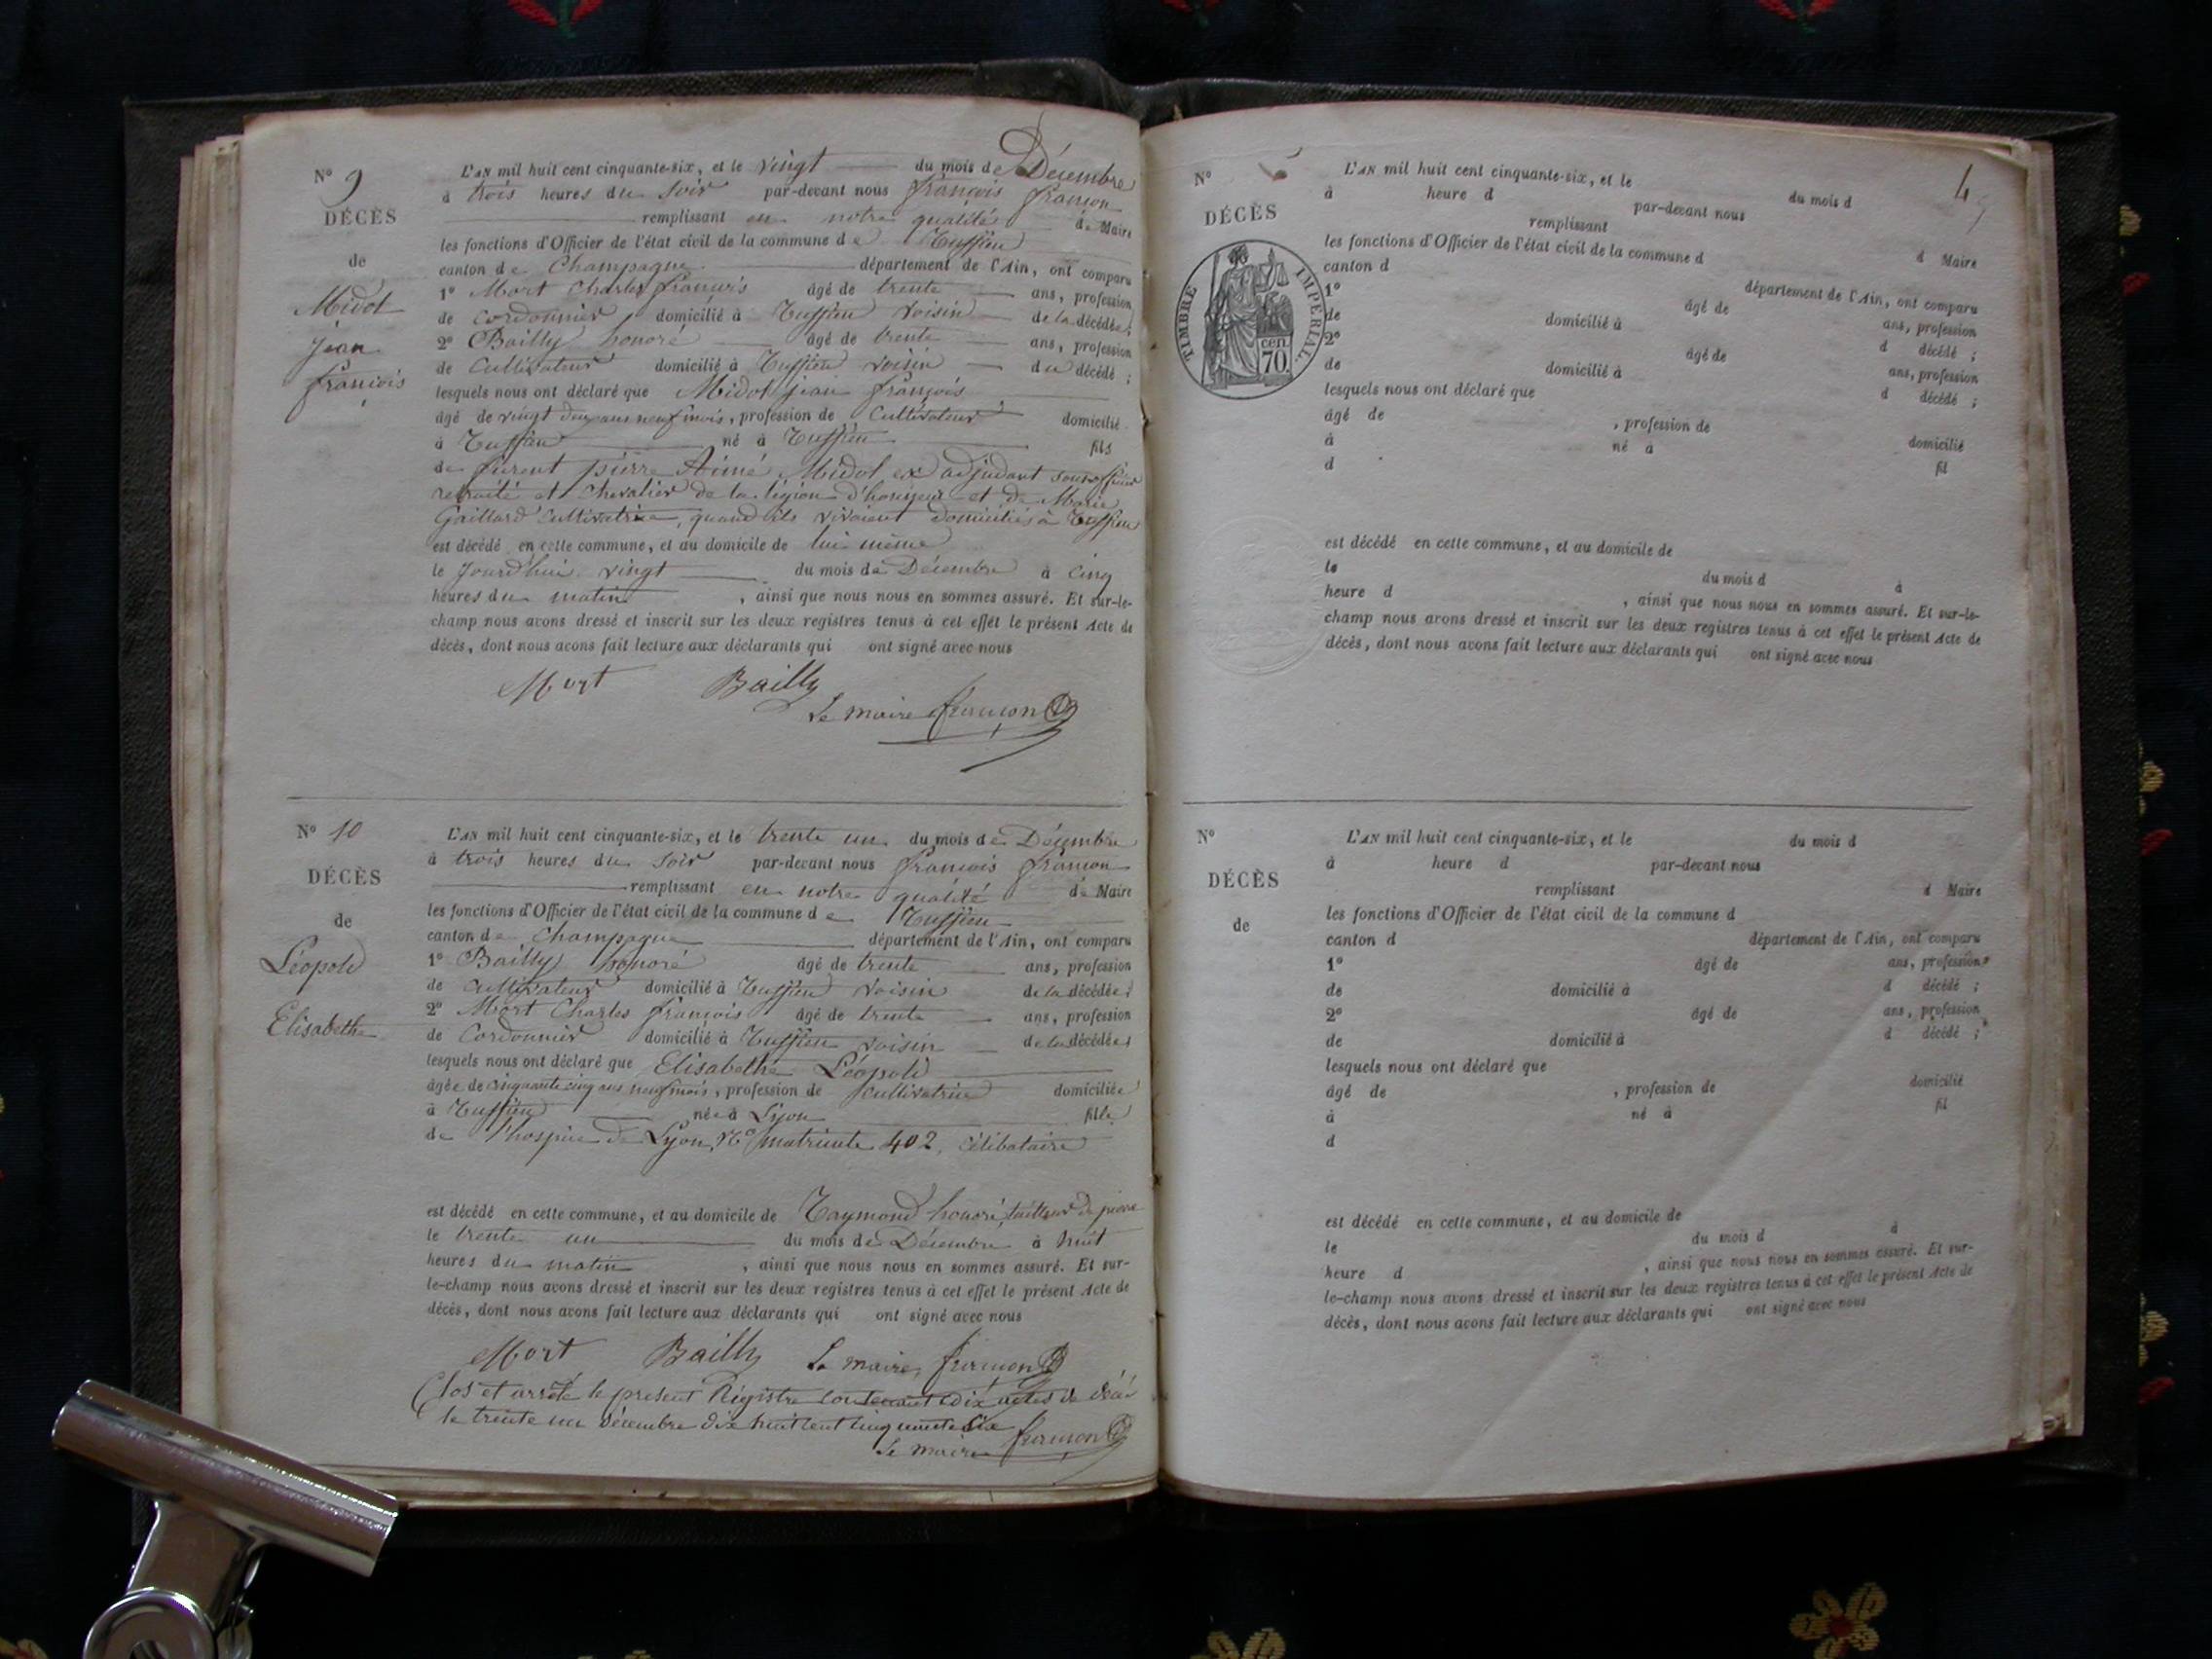 N° 9
DÉCÈS
de
Midol
jean
françois
L'AN mil huit cent cinquante-six, et le vingt du mois de Décembre
à trois heures du soir par-devant nous françois françon
remplissant en notre qualité de Maire
les fonctions d'Officier de l'état civil de la commune de
canton de Champagne département de l'Ain, ont comparu
1° Mort Charles françois âgé de trente ans, profession
de cordonnier domicilié à voisin de la décédée;
2° Bailly honoré âgé de trente ans, profession
de Cultivateur domicilié à voisin du décédé;
lesquels nous ont déclaré que Midol jean françois
âgé de vingt deux ans neuf mois, profession de Cultivateur domicilié
à né à fils
de furent pierre Aimé Midol ex adjudant sous officier
retraité et Chevalier de la légion d'honneur et de Marie
Gaillard cultivatrice, quand ils vivaient domiciliés à
est décédé en cette commune, et au domicile de lui même
le jourd'hui vingt du mois de Décembre à cinq
heures du matin, ainsi que nous nous en sommes assuré. Et sur-le-
champ nous avons dressé et inscrit sur les deux registres tenus à cet effet le présent Acte de
décès, dont nous avons fait lecture aux déclarants qui ont signé avec nous
Mort Bailly
Le maire françon
N° 10
DÉCÈS
de
Léopold
Elisabethe
L'AN mil huit cent cinquante-six, et le trente un du mois de Décembre
à trois heures du soir par-devant nous françois françon
remplissant en notre qualité de Maire
les fonctions d'Officier de l'état civil de la commune de
canton de Champagne département de l'Ain, ont comparu
1° Bailly honoré âgé de trente ans, profession
de cultivateur domicilié à voisin de la décédée;
2° Mort Charles françois âgé de trente ans, profession
de Cordonnier domicilié à voisin de la décédée;
lesquels nous ont déclaré que Elisabethe Léopold
âgée de cinquante cinq ans neuf mois, profession de cultivatrice domiciliée
à née à Lyon fille
de l'hospice de Lyon, N° matricule 402, célibataire
est décédé en cette commune, et au domicile de Raymond honoré, tailleur de pierre
le trente un du mois de Décembre à huit
heures du matin, ainsi que nous nous en sommes assuré. Et sur-
le-champ nous avons dressé et inscrit sur les deux registres tenus à cet effet le présent Acte de
décès, dont nous avons fait lecture aux déclarants qui ont signé avec nous
Mort Bailly Le maire, françon
Clos et arrêté le présent Régistre contenant dix actes de décès
le trente un décembre dix huit cent cinquante six
Le maire françon
4
N°
DÉCÈS
TIMBRE IMPERIAL.
70 cen.
L'AN mil huit cent cinquante-six, et le du mois d
à heure d par-devant nous
remplissant d Maire
les fonctions d'Officier de l'état civil de la commune d
canton d département de l'Ain, ont comparu
1° âgé de ans, profession
de domicilié à d décédé;
2° âgé de ans, profession
de domicilié à d décédé;
lesquels nous ont déclaré que
âgé de , profession de domicilié
à né à fil
d
est décédé en cette commune, et au domicile de
le du mois d à
heure d , ainsi que nous nous en sommes assuré. Et sur-le-
champ nous avons dressé et inscrit sur les deux registres tenus à cet effet le présent Acte de
décès, dont nous avons fait lecture aux déclarants qui ont signé avec nous
N°
DÉCÈS
de
L'AN mil huit cent cinquante-six, et le du mois d
à heure d par-devant nous
remplissant d Maire
les fonctions d'Officier de l'état civil de la commune d
canton d département de l'Ain, ont comparu
1° âgé de ans, profession
de domicilié à d décédé;
2° âgé de ans, profession
de domicilié à d décédé;
lesquels nous ont déclaré que
âgé de , profession de domicilié
à né à fil
d
est décédé en cette commune, et au domicile de
le du mois d à
heure d , ainsi que nous nous en sommes assuré. Et sur-
le-champ nous avons dressé et inscrit sur les deux registres tenus à cet effet le présent Acte de
décès, dont nous avons fait lecture aux déclarants qui ont signé avec nous